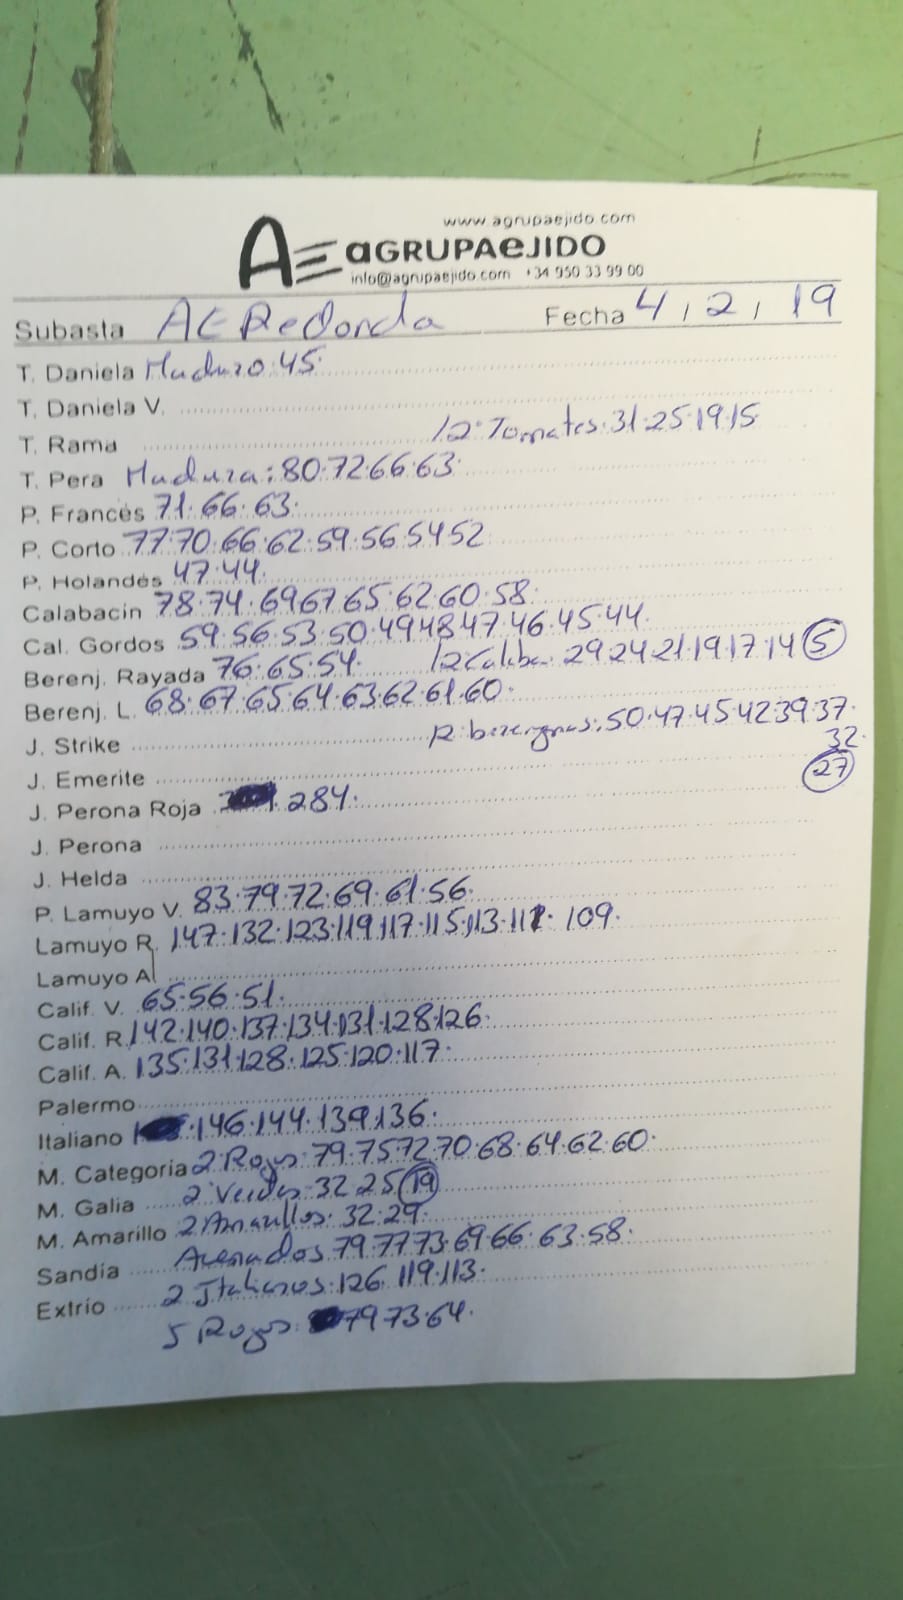 www.agrupaejido.com
AE aGRUPAeJIDO
info@agrupaejido.com +34 950 33 99 00
Subasta AE Redonda Fecha 4, 2, 19
T. Daniela Maduro. 45.
T. Daniela V.
T. Rama 12. Tomates. 31. 25. 19. 15
T. Pera Madura: 80. 72. 66. 63.
P. Francés 71. 66. 63.
P. Corto 77. 70. 66. 62. 59. 56. 54 52
P. Holandés 47. 44.
Calabacín 78. 74. 69 67. 65. 62. 60. 58.
Cal. Gordos 59. 56. 53. 50. 49 48 47. 46. 45. 44.
Berenj. Rayada 76. 65. 54. 29. 24. 21. 19. 17. 14 5
Berenj. L. 68. 67. 65. 64. 63. 62. 61. 60.
J. Strike 50. 47. 45. 42. 39. 37.
32.
J. Emerite 27
J. Perona Roja 284.
J. Perona
J. Helda
P. Lamuyo V. 83. 79. 72. 69. 61. 56.
Lamuyo R. 147. 132. 123. 119. 117. 115. 113. 111. 109.
Lamuyo A
Calif. V. 65. 56. 51.
Calif. R. 142. 140. 137. 134. 131. 128. 126.
Calif. A. 135. 131. 128. 125. 120. 117.
Palermo
Italiano 146. 144. 139. 136.
M. Categoría 2 Rojos. 79. 75 72. 70. 68. 64. 62. 60.
M. Galia 2 Verdes. 32. 25 19
M. Amarillo 2 Amarillos. 32. 29.
Sandía 79. 77 73. 69. 66. 63. 58.
Extrio 2 Italianos. 126. 119. 113.
5 Rojos. 79 73. 64.